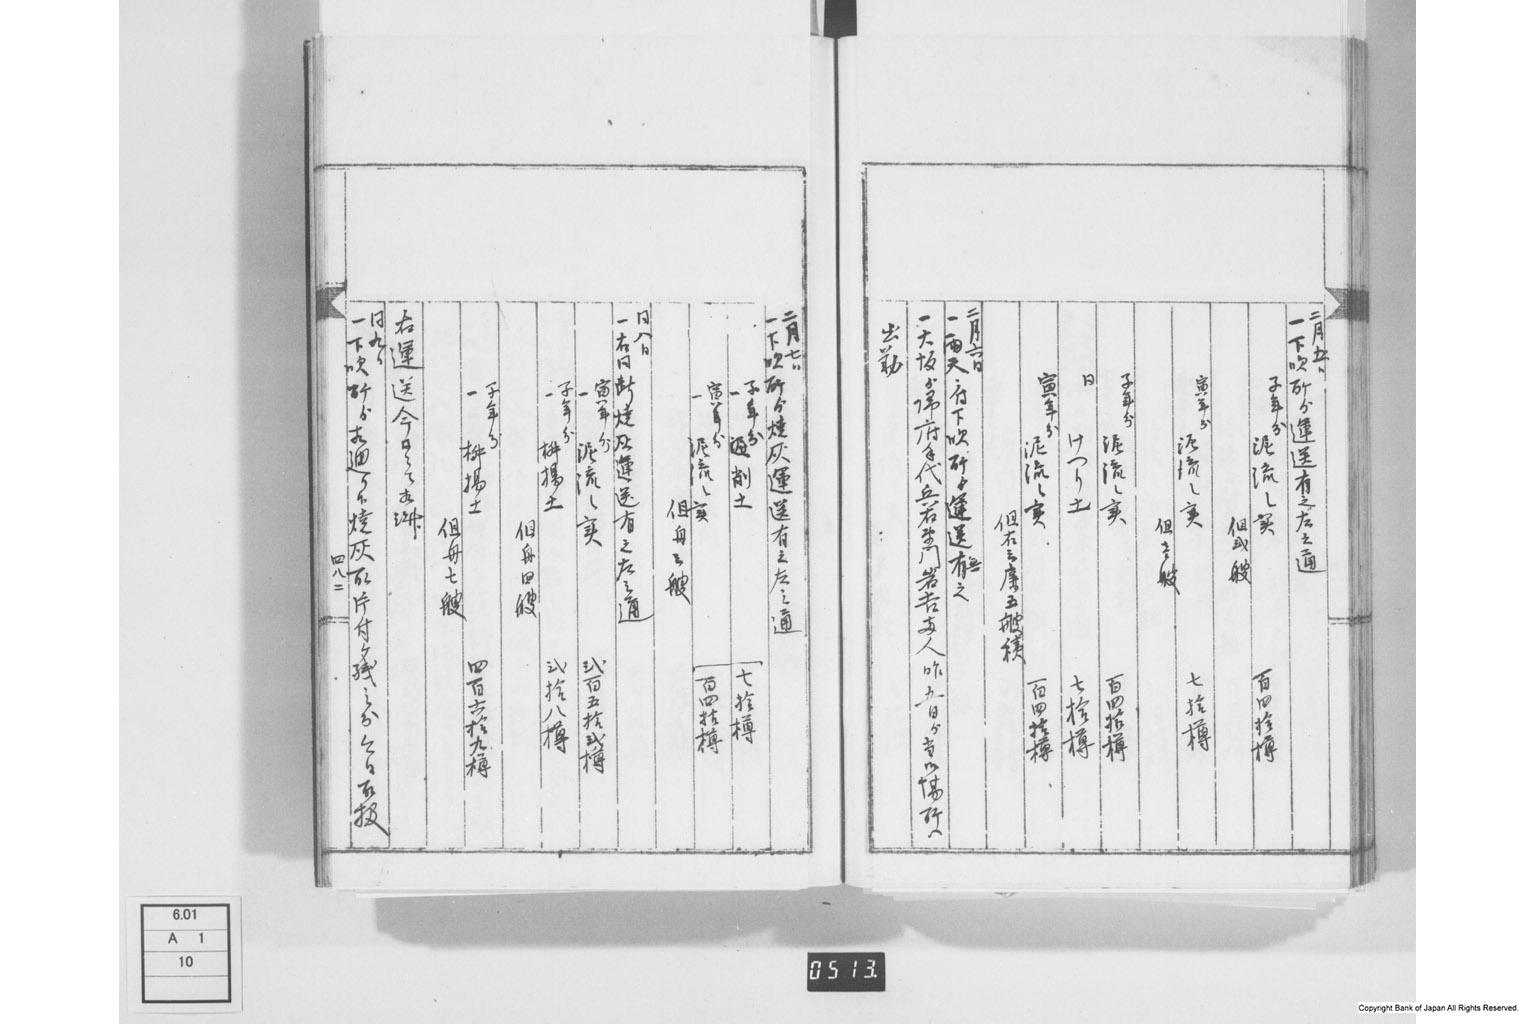 二月五日
一下吹所ゟ運送有之左之通
子年分
泥流し実 百四拾樽
但弐艘
寅年分
泥流し実 七拾樽
但壱艘
子年分
泥流し実 百四拾樽
同 けつり土 七拾樽
寅年分
泥流し実 百四拾樽
但右三廉五艘積
二月六日
一雨天ニ付下吹所ゟ運送無之
一大坂ゟ帰府手代兵右衛門岩吉両人昨五日ゟ当御場所へ
出勤
二月七日
一下吹所ゟ焼灰運送有之左之通
子年分
一 削土 七拾樽
寅年分
一 泥流し実 百四拾樽
但舟三艘
同八日
一右同断焼灰運送有之左之通
寅年分
一 泥流し実 弐百五拾弐樽
子年分
一 桝揚土 弐拾八樽
但舟四艘
子年分
一 桝揚土 四百六拾九樽
但舟七艘
右運送今日ニて相済
同九日
一下吹所ゟ相廻り候焼灰取片付残之分今日取扱
四八二
6.01
A 1
10
0513.
Copyright Bank of Japan All Rights Reserved.